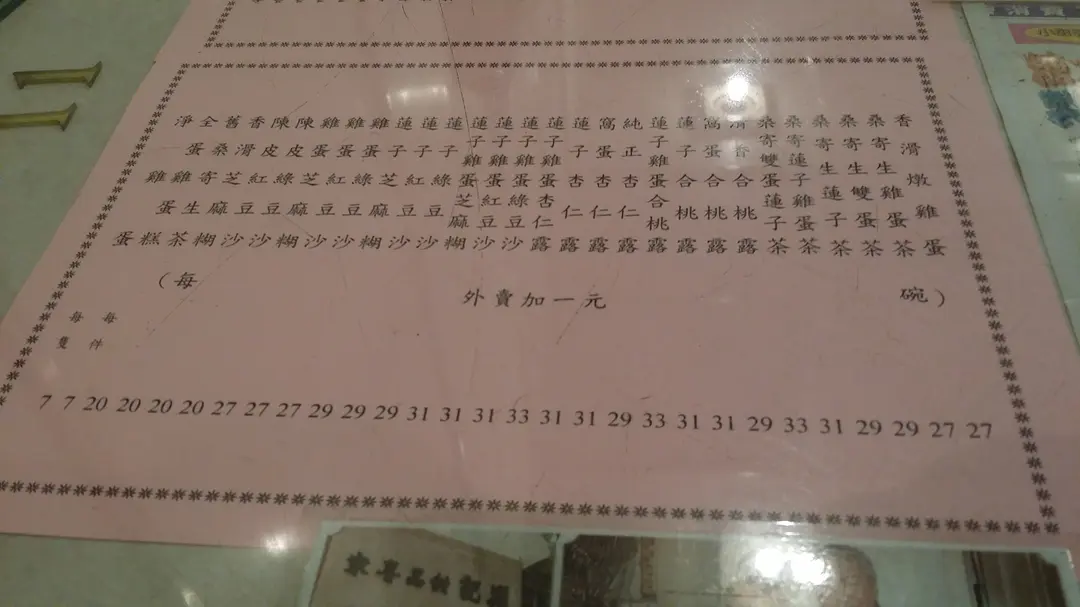 香滑燉雞蛋 27
桑寄生雞蛋茶 27
桑寄生雙蛋茶 29
桑寄生蓮子茶 29
桑寄蓮子雞蛋茶 31
桑寄雙蛋蓮子茶 33
滑香合桃露 29
窩蛋合桃露 31
蓮子合桃露 31
蓮子雞蛋合桃露 33
純正杏仁露 29
窩蛋杏仁露 31
蓮子杏仁露 31
蓮子雞蛋杏仁露 33
蓮子雞蛋綠豆沙 31
蓮子雞蛋紅豆沙 31
蓮子雞蛋芝麻糊 31
蓮子綠豆沙 29
蓮子紅豆沙 29
蓮子芝麻糊 29
雞蛋綠豆沙 27
雞蛋紅豆沙 27
雞蛋芝麻糊 27
陳皮綠豆沙 20
陳皮紅豆沙 20
香滑芝麻糊 20
舊桑寄生茶 20
全蛋雞蛋糕 每件 7
淨雞蛋 每隻 7
(每碗)
外賣加一元
消費